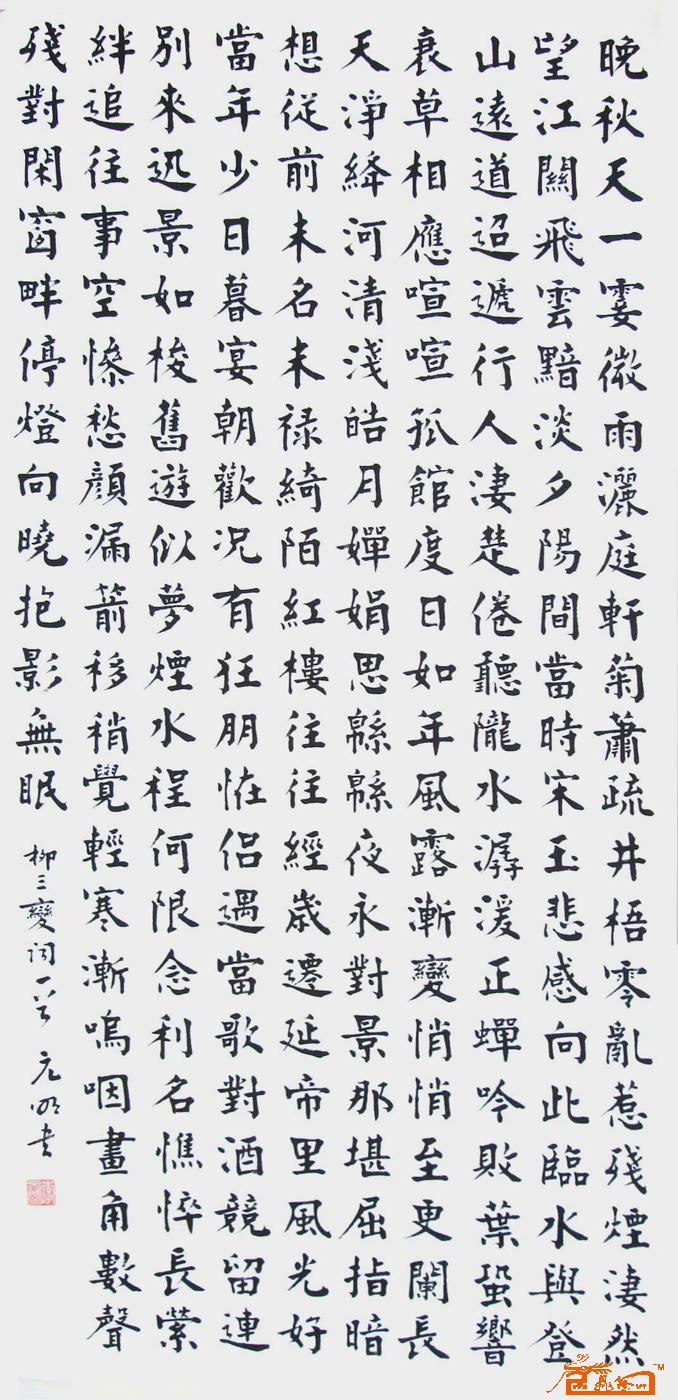 晚秋天一霎微雨灑庭軒菊蕭疏井梧零亂惹殘煙淒然
望江關飛雲黯淡夕陽間當時宋玉悲感向此臨水與登
山遠道迢遞行人淒楚倦聽隴水潺湲正蟬吟敗葉蛩響
衰草相應喧喧孤館度日如年風露漸變悄悄至更闌長
天淨絳河清淺皓月嬋娟思緜緜夜永對景那堪屈指暗
想從前未名未祿綺陌紅樓往往經歲遷延帝里風光好
當年少日暮宴朝歡况有狂朋恠侶遇當歌對酒競留連
別來迅景如梭舊遊似夢煙水程何限念利名憔悴長縈
絆追往事空慘愁顏漏箭移稍覺輕寒漸嗚咽畫角數聲
殘對閑窗畔停燈向曉抱影無眠
柳三變詞一首 元明書